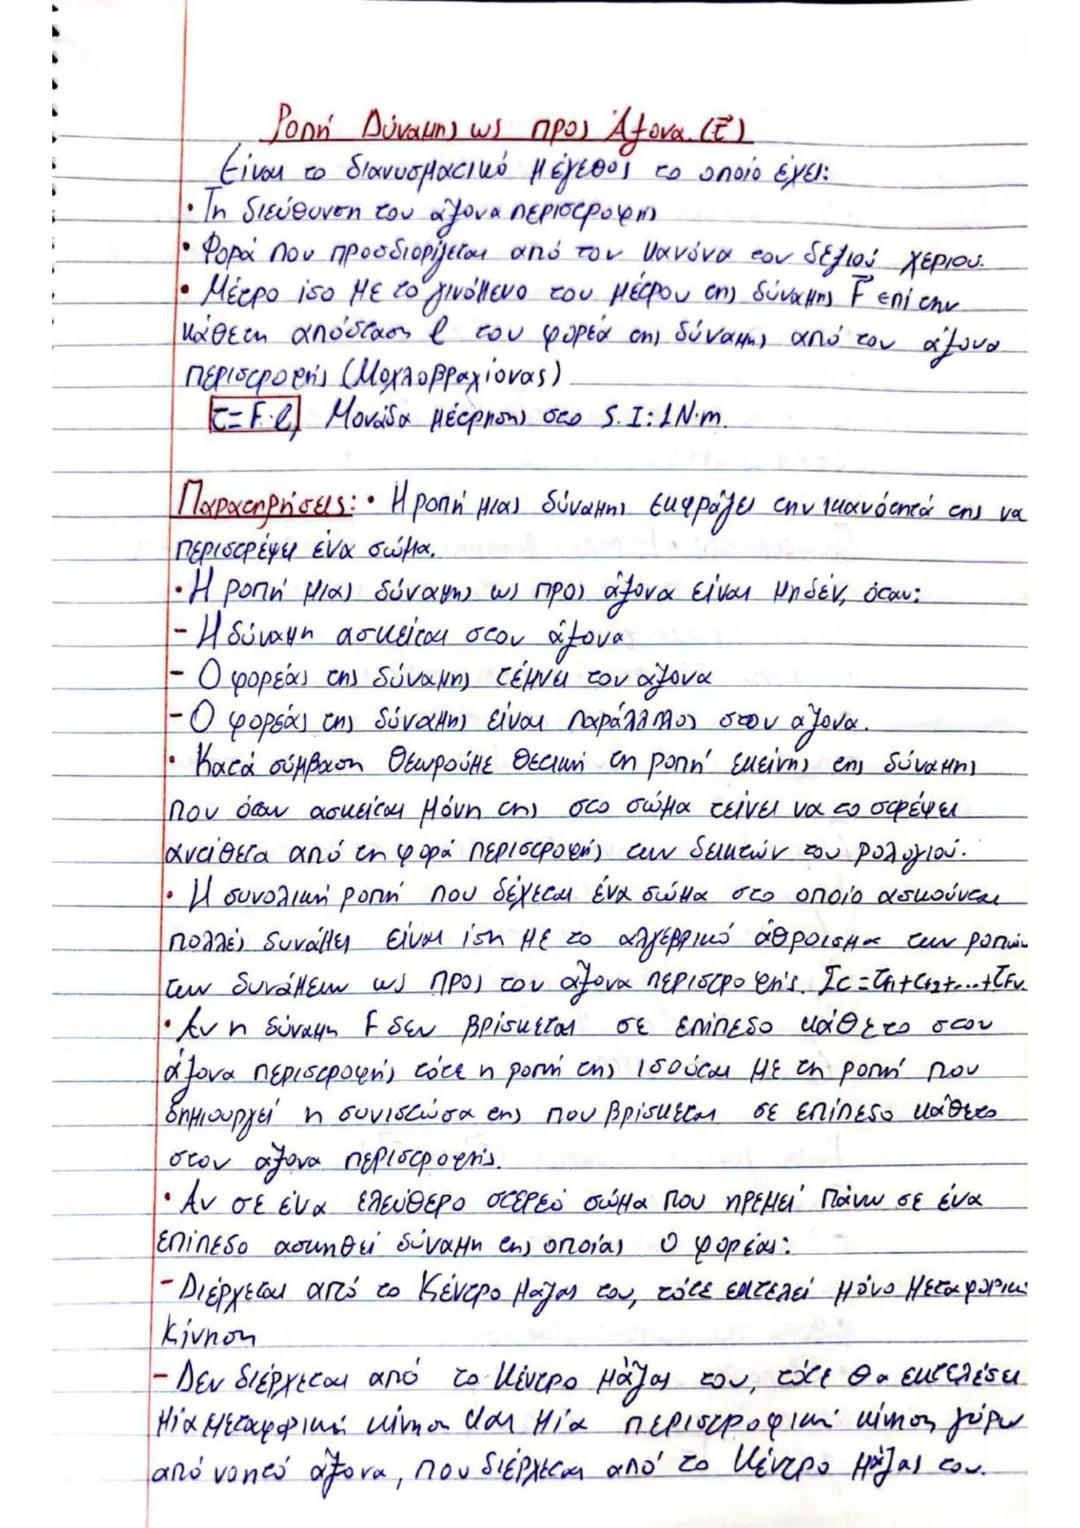 Ροπή Δύναμης ως προς Άξονα (τ⃗)
Είναι το διανυσματικό μέγεθος το οποίο έχει:
• Τη διεύθυνση του άξονα περιστροφής
• Φορά που προσδιορίζεται από τον κανόνα του δεξιού χεριού.
• Μέτρο ίσο με το γινόμενο του μέτρου της δύναμης F⃗ επί την
κάθετη απόσταση l του φορέα της δύναμης από τον άξονα
περιστροφής (Μοχλοβραχίονας)
τ=F·l, Μονάδα μέτρησης στο S.I: 1N·m.
Παρατηρήσεις: • Η ροπή μιας δύναμης εκφράζει την ικανότητά της να
περιστρέψει ένα σώμα.
• Η ροπή μιας δύναμης ως προς άξονα είναι μηδέν, όταν:
- Η δύναμη ασκείται στον άξονα
- Ο φορέας της δύναμης τέμνει τον άξονα
- Ο φορέας της δύναμης είναι παράλληλος στον άξονα.
• Κατά σύμβαση θεωρούμε θετική τη ροπή εκείνης της δύναμης
που όταν ασκείται μόνη της στο σώμα τείνει να το στρέψει
αντίθετα από τη φορά περιστροφής των δεικτών του ρολογιού.
• Η συνολική ροπή που δέχεται ένα σώμα στο οποίο ασκούνται
πολλές δυνάμεις είναι ίση με το αλγεβρικό άθροισμα των ροπών
των δυνάμεων ως προς τον άξονα περιστροφής. Στ=τF1+τF2+...+τFν
• Αν η δύναμη F δεν βρίσκεται σε επίπεδο κάθετο στον
άξονα περιστροφής τότε η ροπή της ισούται με τη ροπή που
δημιουργεί η συνιστώσα της που βρίσκεται σε επίπεδο κάθετο
στον άξονα περιστροφής.
• Αν σε ένα ελεύθερο στερεό σώμα που ηρεμεί πάνω σε ένα
επίπεδο ασκηθεί δύναμη της οποίας ο φορέας:
- Διέρχεται από το Κέντρο Μάζας του, τότε εκτελεί μόνο μεταφορική
κίνηση
- Δεν διέρχεται από το Κέντρο μάζας του, τότε θα εκτελέσει
μία μεταφορική κίνηση και μία περιστροφική κίνηση γύρω
από νοητό άξονα, που διέρχεται από το Κέντρο μάζας του.